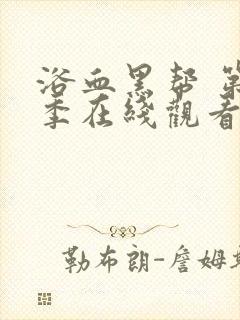 浴血黑帮 第
季在线觀看
勒布朗-詹姆斯